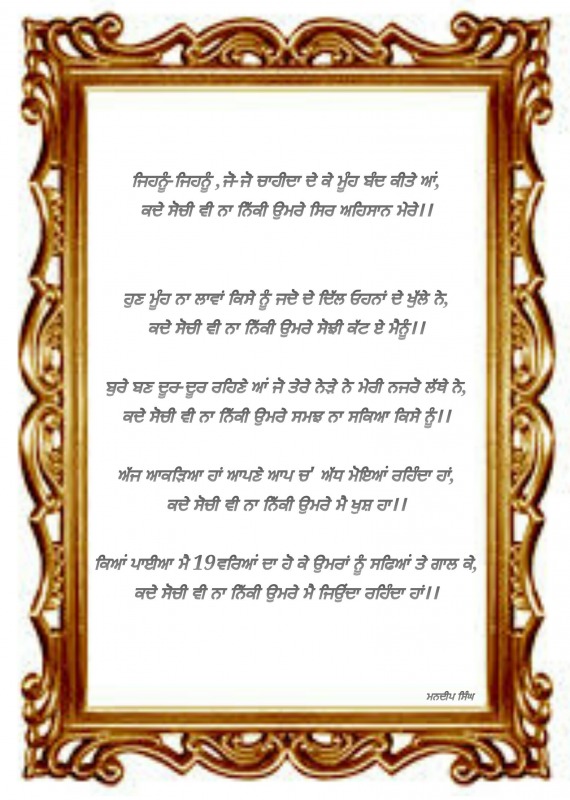 ਜਿਹਨੂੰ-ਜਿਹਨੂੰ ,ਜੋ-ਜੋ ਚਾਹੀਦਾ ਦੇ ਕੇ ਮੂੰਹ ਬੰਦ ਕੀਤੇ ਆਂ,
ਕਦੇ ਸੋਚੀ ਵੀ ਨਾ ਨਿੱਕੀ ਉਮਰੇ ਸਿਰ ਅਹਿਸਾਨ ਮੇਰੇ।।
ਹੁਣ ਮੂੰਹ ਨਾ ਲਾਵਾਂ ਕਿਸੇ ਨੂੰ ਜਦੋ ਦੇ ਦਿੱਲ ਓਹਨਾਂ ਦੇ ਖੁੱਲੇ ਨੇ,
ਕਦੇ ਸੋਚੀ ਵੀ ਨਾ ਨਿੱਕੀ ਉਮਰੇ ਸੋਝੀ ਕੱਟ ਏ ਮੈਨੂੰ।।
ਬੁਰੇ ਬਣ ਦੂਰ-ਦੂਰ ਰਹਿਣੇ ਆਂ ਜੋ ਤੇਰੇ ਨੇੜੇ ਨੇ ਮੇਰੀ ਨਜਰੋ ਲੱਥੇ ਨੇ,
ਕਦੇ ਸੋਚੀ ਵੀ ਨਾ ਨਿੱਕੀ ਉਮਰੇ ਸਮਝ ਨਾ ਸਕਿਆ ਕਿਸੇ ਨੂੰ।।
ਅੱਜ ਆਕੜਿਆ ਹਾਂ ਆਪਣੇ ਆਪ ਚ' ਅੱਧ ਮੋਇਆਂ ਰਹਿੰਦਾ ਹਾਂ,
ਕਦੇ ਸੋਚੀ ਵੀ ਨਾ ਨਿੱਕੀ ਉਮਰੇ ਮੈ ਖੁਸ਼ ਹਾ।।
ਕਿਆਂ ਪਾਈਆ ਮੈ 19ਵਰਿਆਂ ਦਾ ਹੋ ਕੇ ਉਮਰਾਂ ਨੂੰ ਸਫਿਆਂ ਤੇ ਗਾਲ ਕੇ,
ਕਦੇ ਸੋਚੀ ਵੀ ਨਾ ਨਿੱਕੀ ਉਮਰੇ ਮੈ ਜਿਉਂਦਾ ਰਹਿੰਦਾ ਹਾਂ।।
ਮਨਦੀਪ ਸਿੰਘ